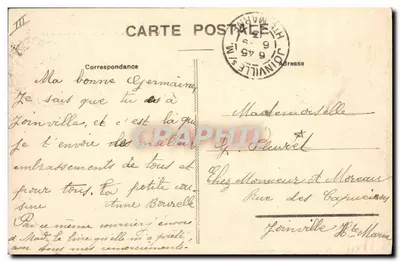 III
CARTE POSTALE
Correspondance
Adresse
JOINVILLE S/ M
Hte MARNE
6 45
Ma bonne Germaine,
Je sais que tu es à
Joinville, et c'est là que
je t'envoie des meilleurs
embrassements de tous et
pour tous. Ta petite cou-
sine Anne Bourelle
Par ce même courrier j'envoie
à le livre qu'elle m'a prêté,
avec tous mes remerciements.
Mademoiselle
G. Lieuret
Chez Monsieur A Moreau
Rue des Capucins
Joinville Hte Marne
CPARAMA